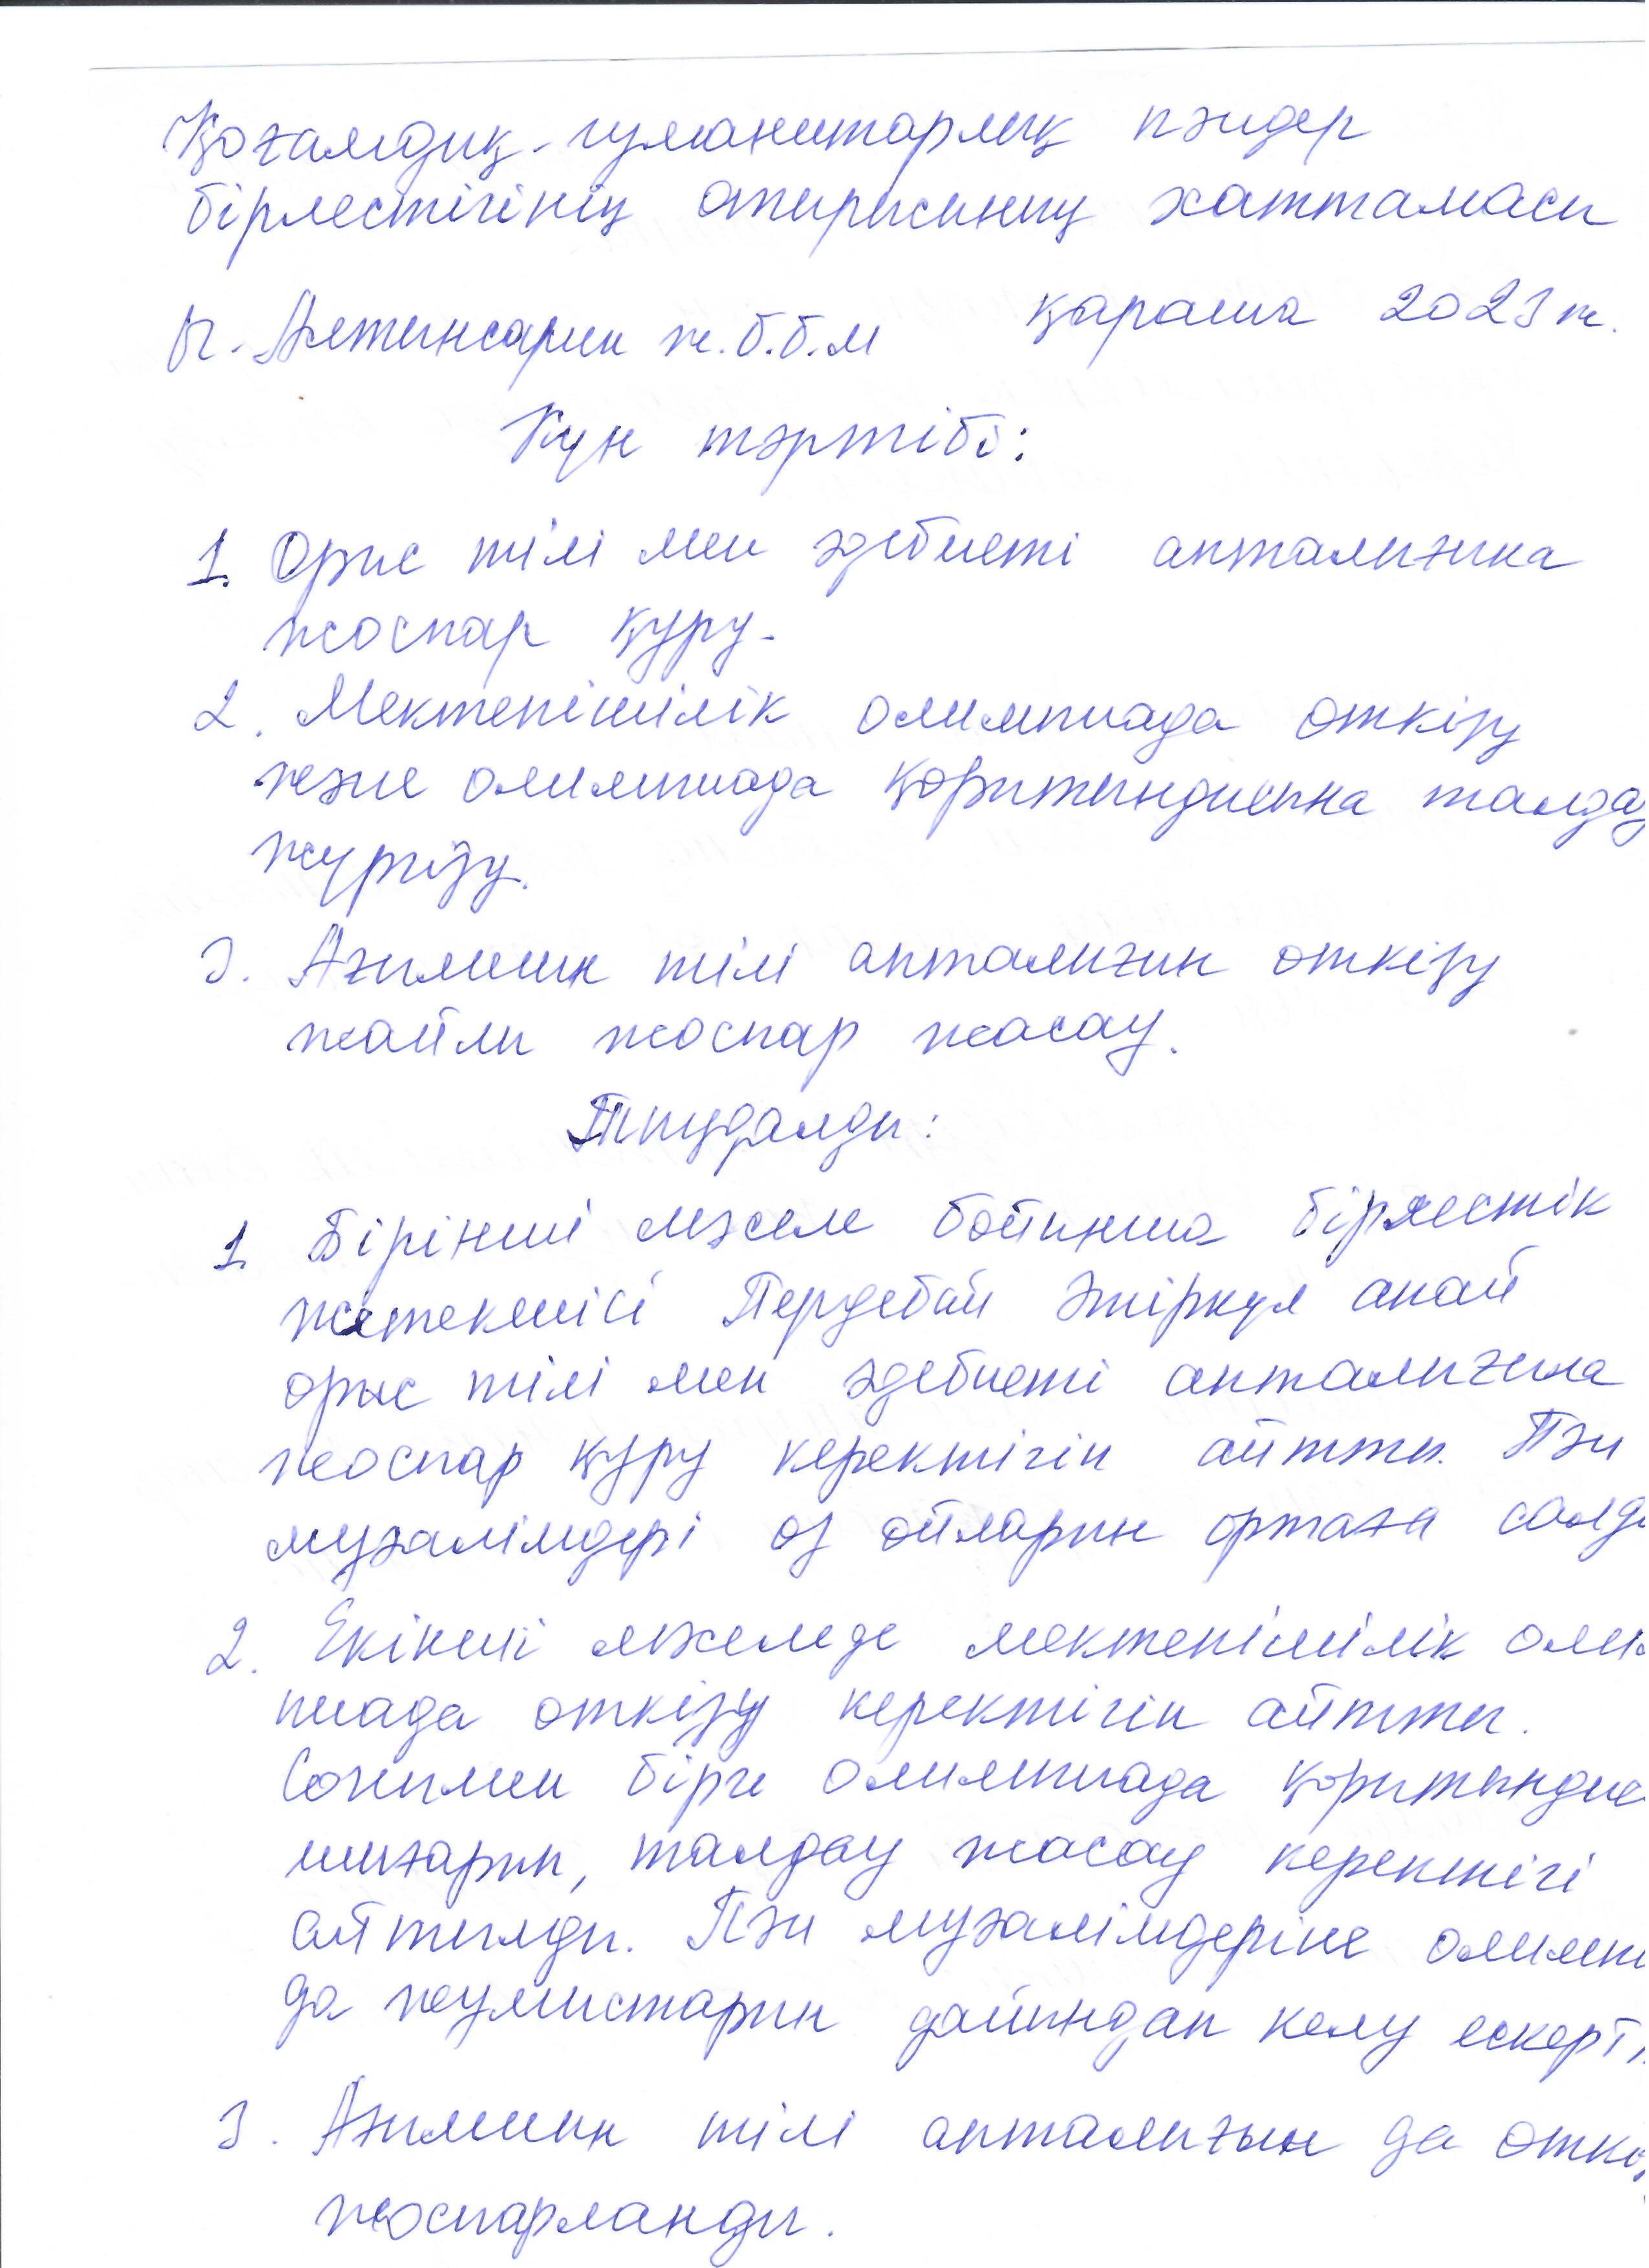 Қоғамдық-гуманитарлық пәндер
бірлестігінің отырысының хаттамасы
Ы. Алтынсарин ж.б.б.м қараша 2023 ж.
Күн тәртібі:
1. Орыс тілі мен әдебиеті апталығына
жоспар құру.
2. Мектепішілік олимпиада өткізу
және олимпиада қорытындысына талдау
жүргізу.
3. Ағылшын тілі апталығын өткізу
жайлы жоспар жасау.
Тыңдалды:
1. Бірінші мәселе бойынша бірлестік
жетекшісі Пердебай Әтіркүл апай
орыс тілі мен әдебиеті апталығына
жоспар құру керектігін айтты. Пән
мұғалімдері өз ойларын ортаға салды
2. Екінші мәселеде мектепішілік олим
пиада өткізу керектігін айтты.
Сонымен бірге олимпиада қорытындыс
шығарып, талдау жасау керектігі
айтылды. Пән мұғалімдеріне олимпи
да жұмыстарын дайындап келу ескерт
3. Ағылшын тілі апталығын да өткі
жоспарланды.